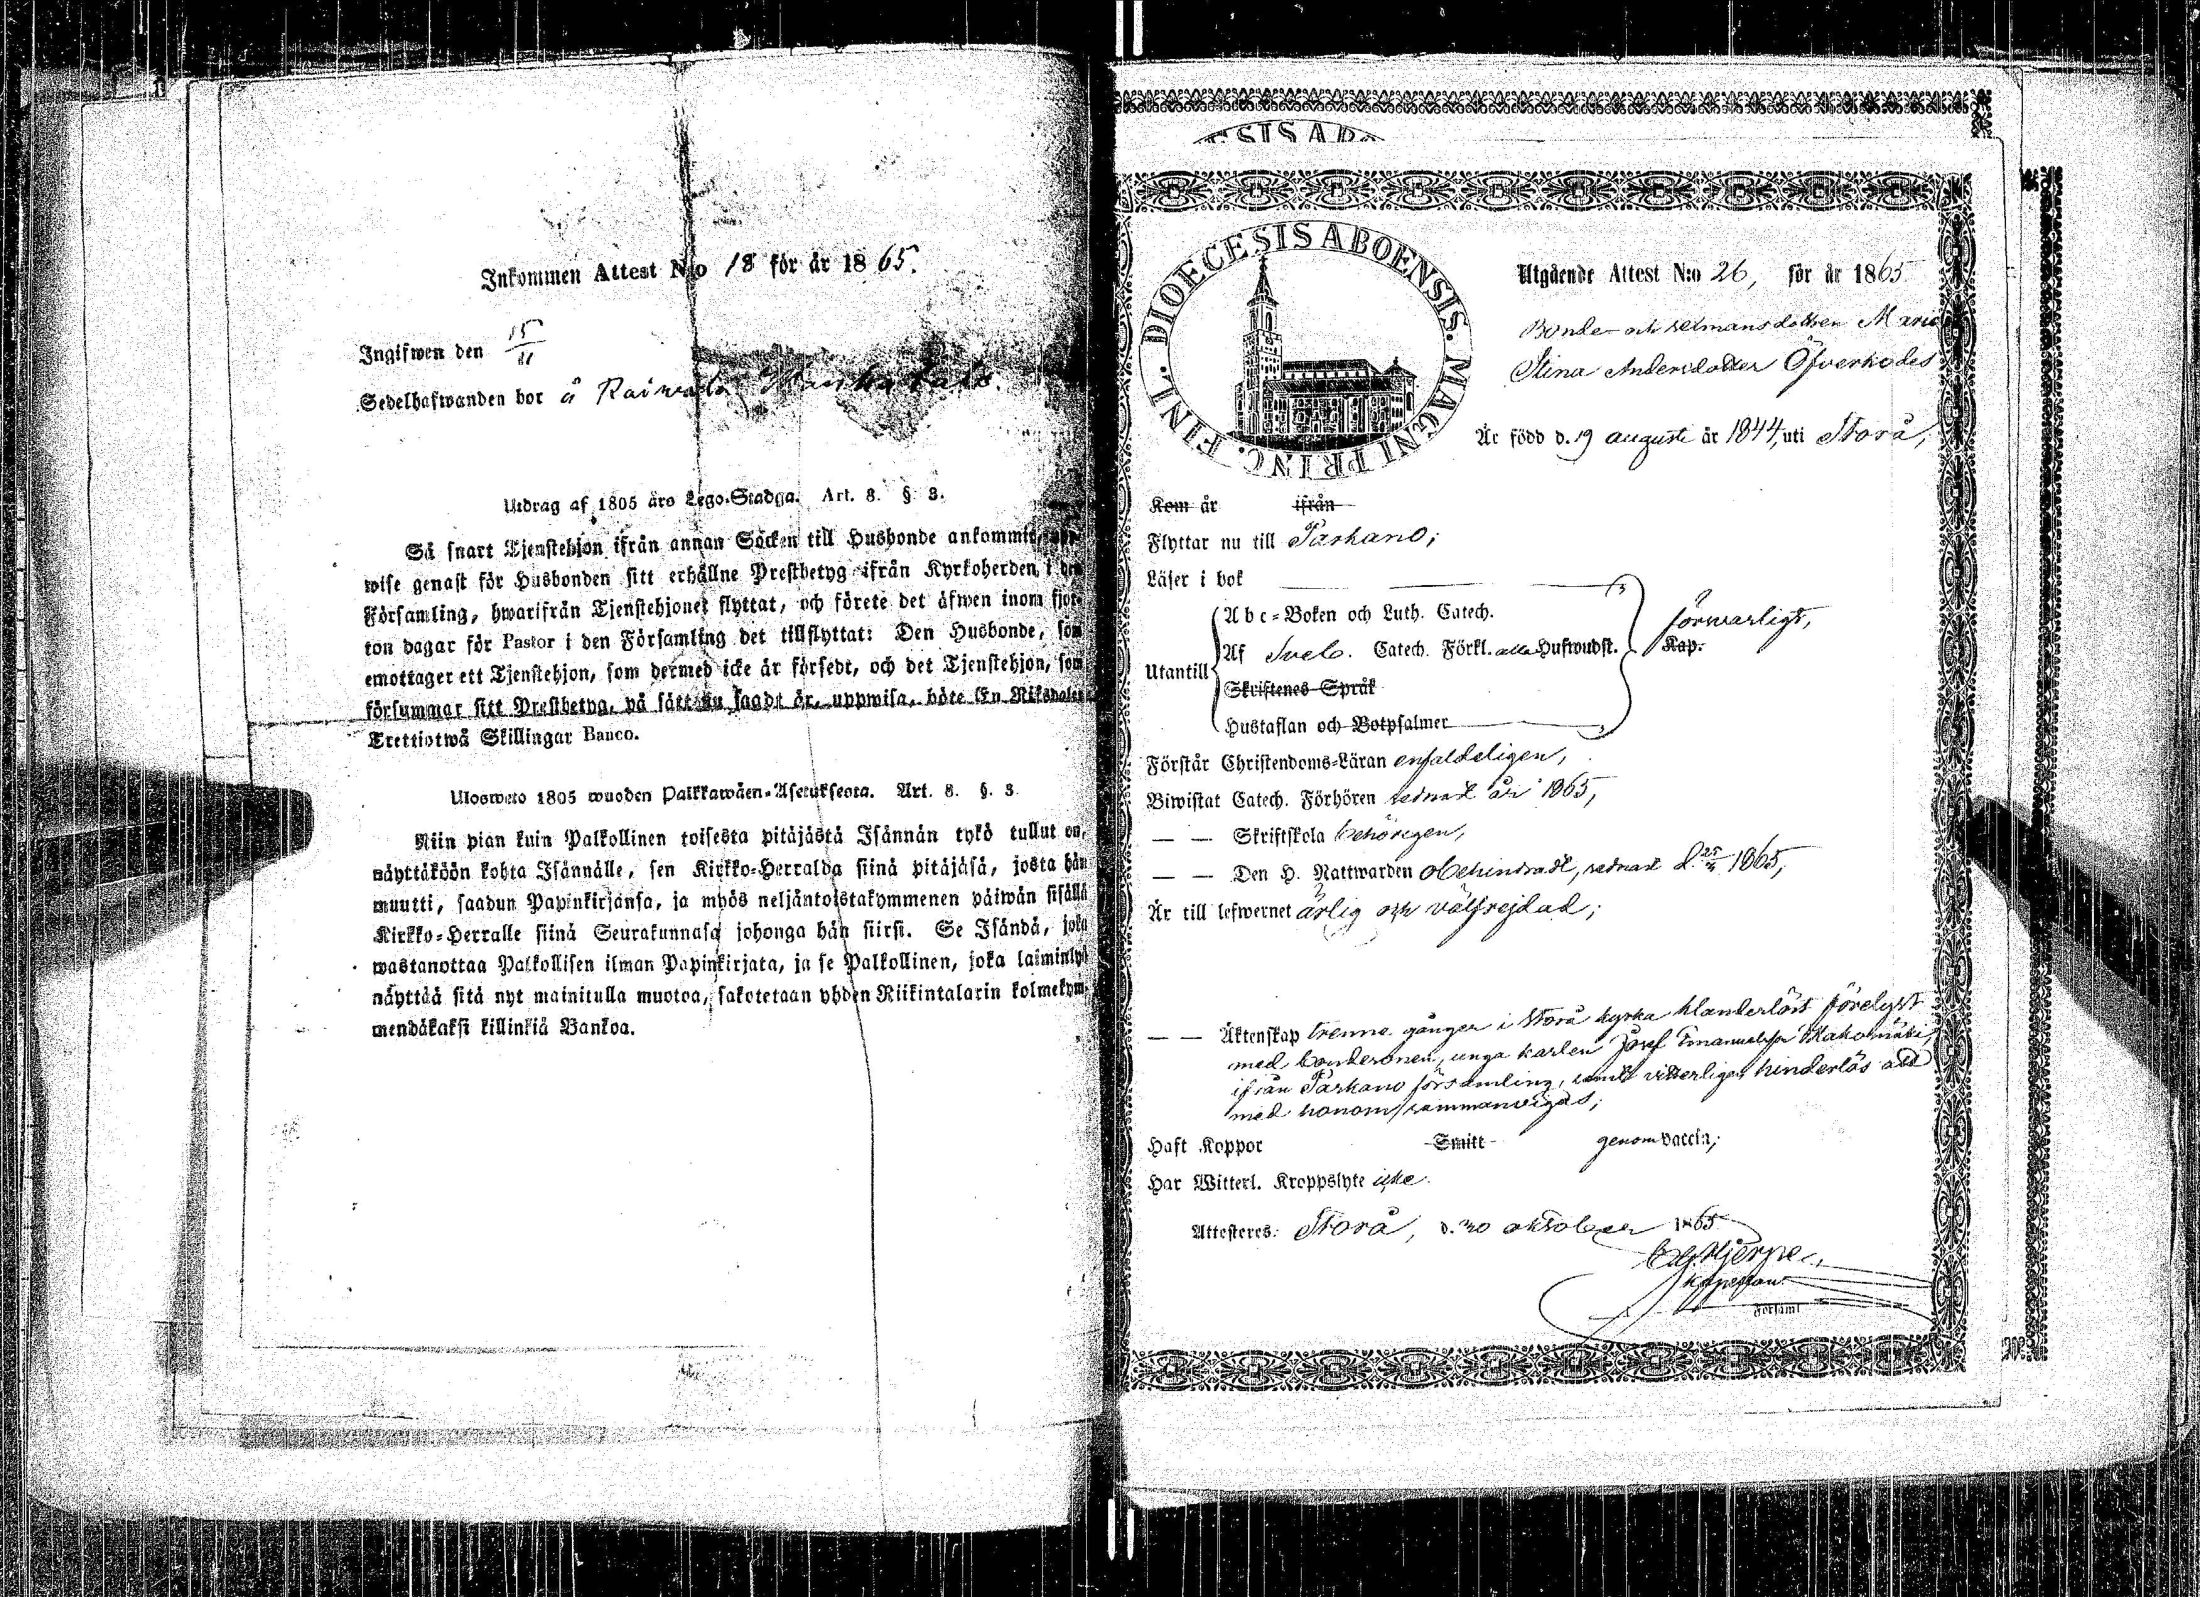 Inkommen Attest N:o 18 för år 1865.
Ingifwen den 15/11
Sedelhafwanden bor å Raiwala
Utdrag af 1805 års Lego-Stadga. Art. 8. § 3.
Så snart Tjenstehjon ifrån annan Socken till Husbonde ankommit,
wise genast för Husbonden sitt erhållne Prestbetyg ifrån Kyrkoherden i den
Församling, hwarifrån Tjenstehjonet flyttat, och förete det äfwen inom fjor-
ton dagar för Pastor i den Församling det tillflyttat: Den Husbonde, som
emottager ett Tjenstehjon, som dermed icke är försedt, och det Tjenstehjon, som
försummar sitt Prestbetyg, på sätt nu sagdt är, uppwisa, böte En Riksdaler
Trettiotwå Skillingar Banco.
Ulosweto 1805 wuoden Palkkawäen-Asetuksesta. Art. 8. §. 3
Niin pian kuin Palkollinen toisesta pitäjästä Isännän tykö tullut on,
näyttäköön kohta Isännälle, sen Kirkko-Herralda siinä pitäjäsä, josta hän
muutti, saadun Papinkirjansa, ja myös neljäntoistakymmenen päiwän sisällä
Kirkko-Herralle siinä Seurakunnasa johonga hän siirsi. Se Isändä, joka
wastanottaa Palkollisen ilman Papinkirjata, ja se Palkollinen, joka laiminlyö
näyttää sitä nyt mainitulla muotoa, sakotetaan yhden Riikintalarin kolmekym-
mendäkaksi killinkiä Bankoa.
ESIS AB
DIOECESIS ABOENSIS. MAGNI PRINC. FINL.
Utgående Attest N:o 26, för år 1865
Bonde- och sexmansdottren Maria
Stina Andersdotter Öfverkodes
Är född d. 19 augusti år 1844, uti Storå,
Kom år ifrån
Flyttar nu till Parkano;
Läser i bok
Abc-Boken och Luth. Catech. förswarligt,
Utantill Af Sveb. Catech. Förkl. alla Hufwudst. Kap.
Skriftenes Språk
Hustaflan och Botpsalmer
Förstår Christendoms-Läran enfaldeligen,
Biwistat Catech. Förhören sednast år 1865,
— — Skriftskola behörigen,
— — Den H. Nattwarden obehindradt, sednast d. 25/ 1865,
Är till lefwernet ärlig och välfrejdad;
— — Äktenskap trenne gånger i Storå kyrka klanderlöst förelyst
med bondesonen, unga karlen Josef Emanuelsson Kakomäki,
ifrån Parkano församling, samt vitterligen hinderlös att
med honom sammanvigas;
Haft Koppor Smitt genom vaccin;
Har Witterl. Kroppslyte icke.
Attesteres: Storå, d. 30 oktober 1865
Hjerpe,
kappellan.
Församl